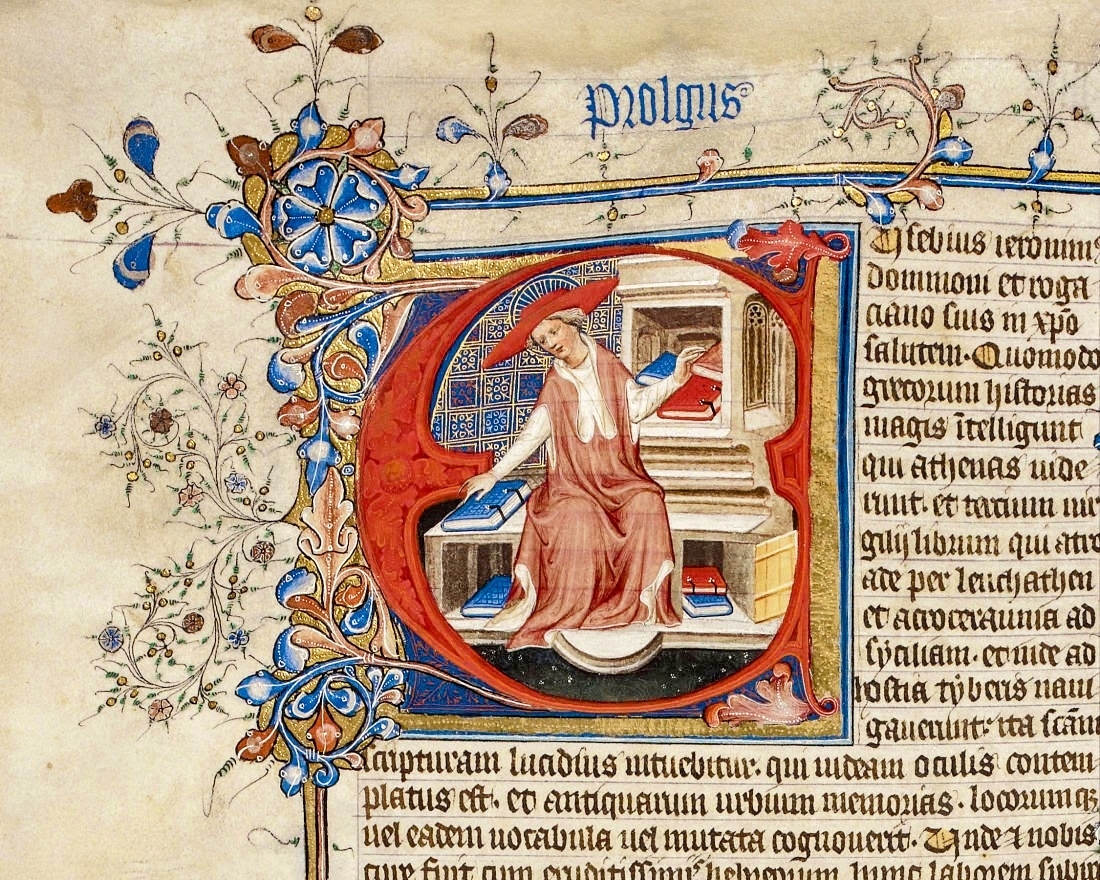 prolgus
EUsebius ieronimꝰ
domnioni et roga
ciano suis in xp̅o
salutem. Quomodo
grecorum historias
magis ītelligunt
qui athenas uide
runt. et tercium uir
gilij librum qui atro
ade per leuchathen
et acroceraunia ad
syciliam. et inde ad
hostia tyberis naui
gauerint: ita scāM
scripturam lucidius intuebitur. qui iudeam oculis contem
platus est. et antiquarum urbium memorias. locorumqꝫ
uel eadem uocabula uel mutata cognouerit. Unde ⁊ nobis
cure fuit cum eruditissimis hebreorum hunc laborem subire